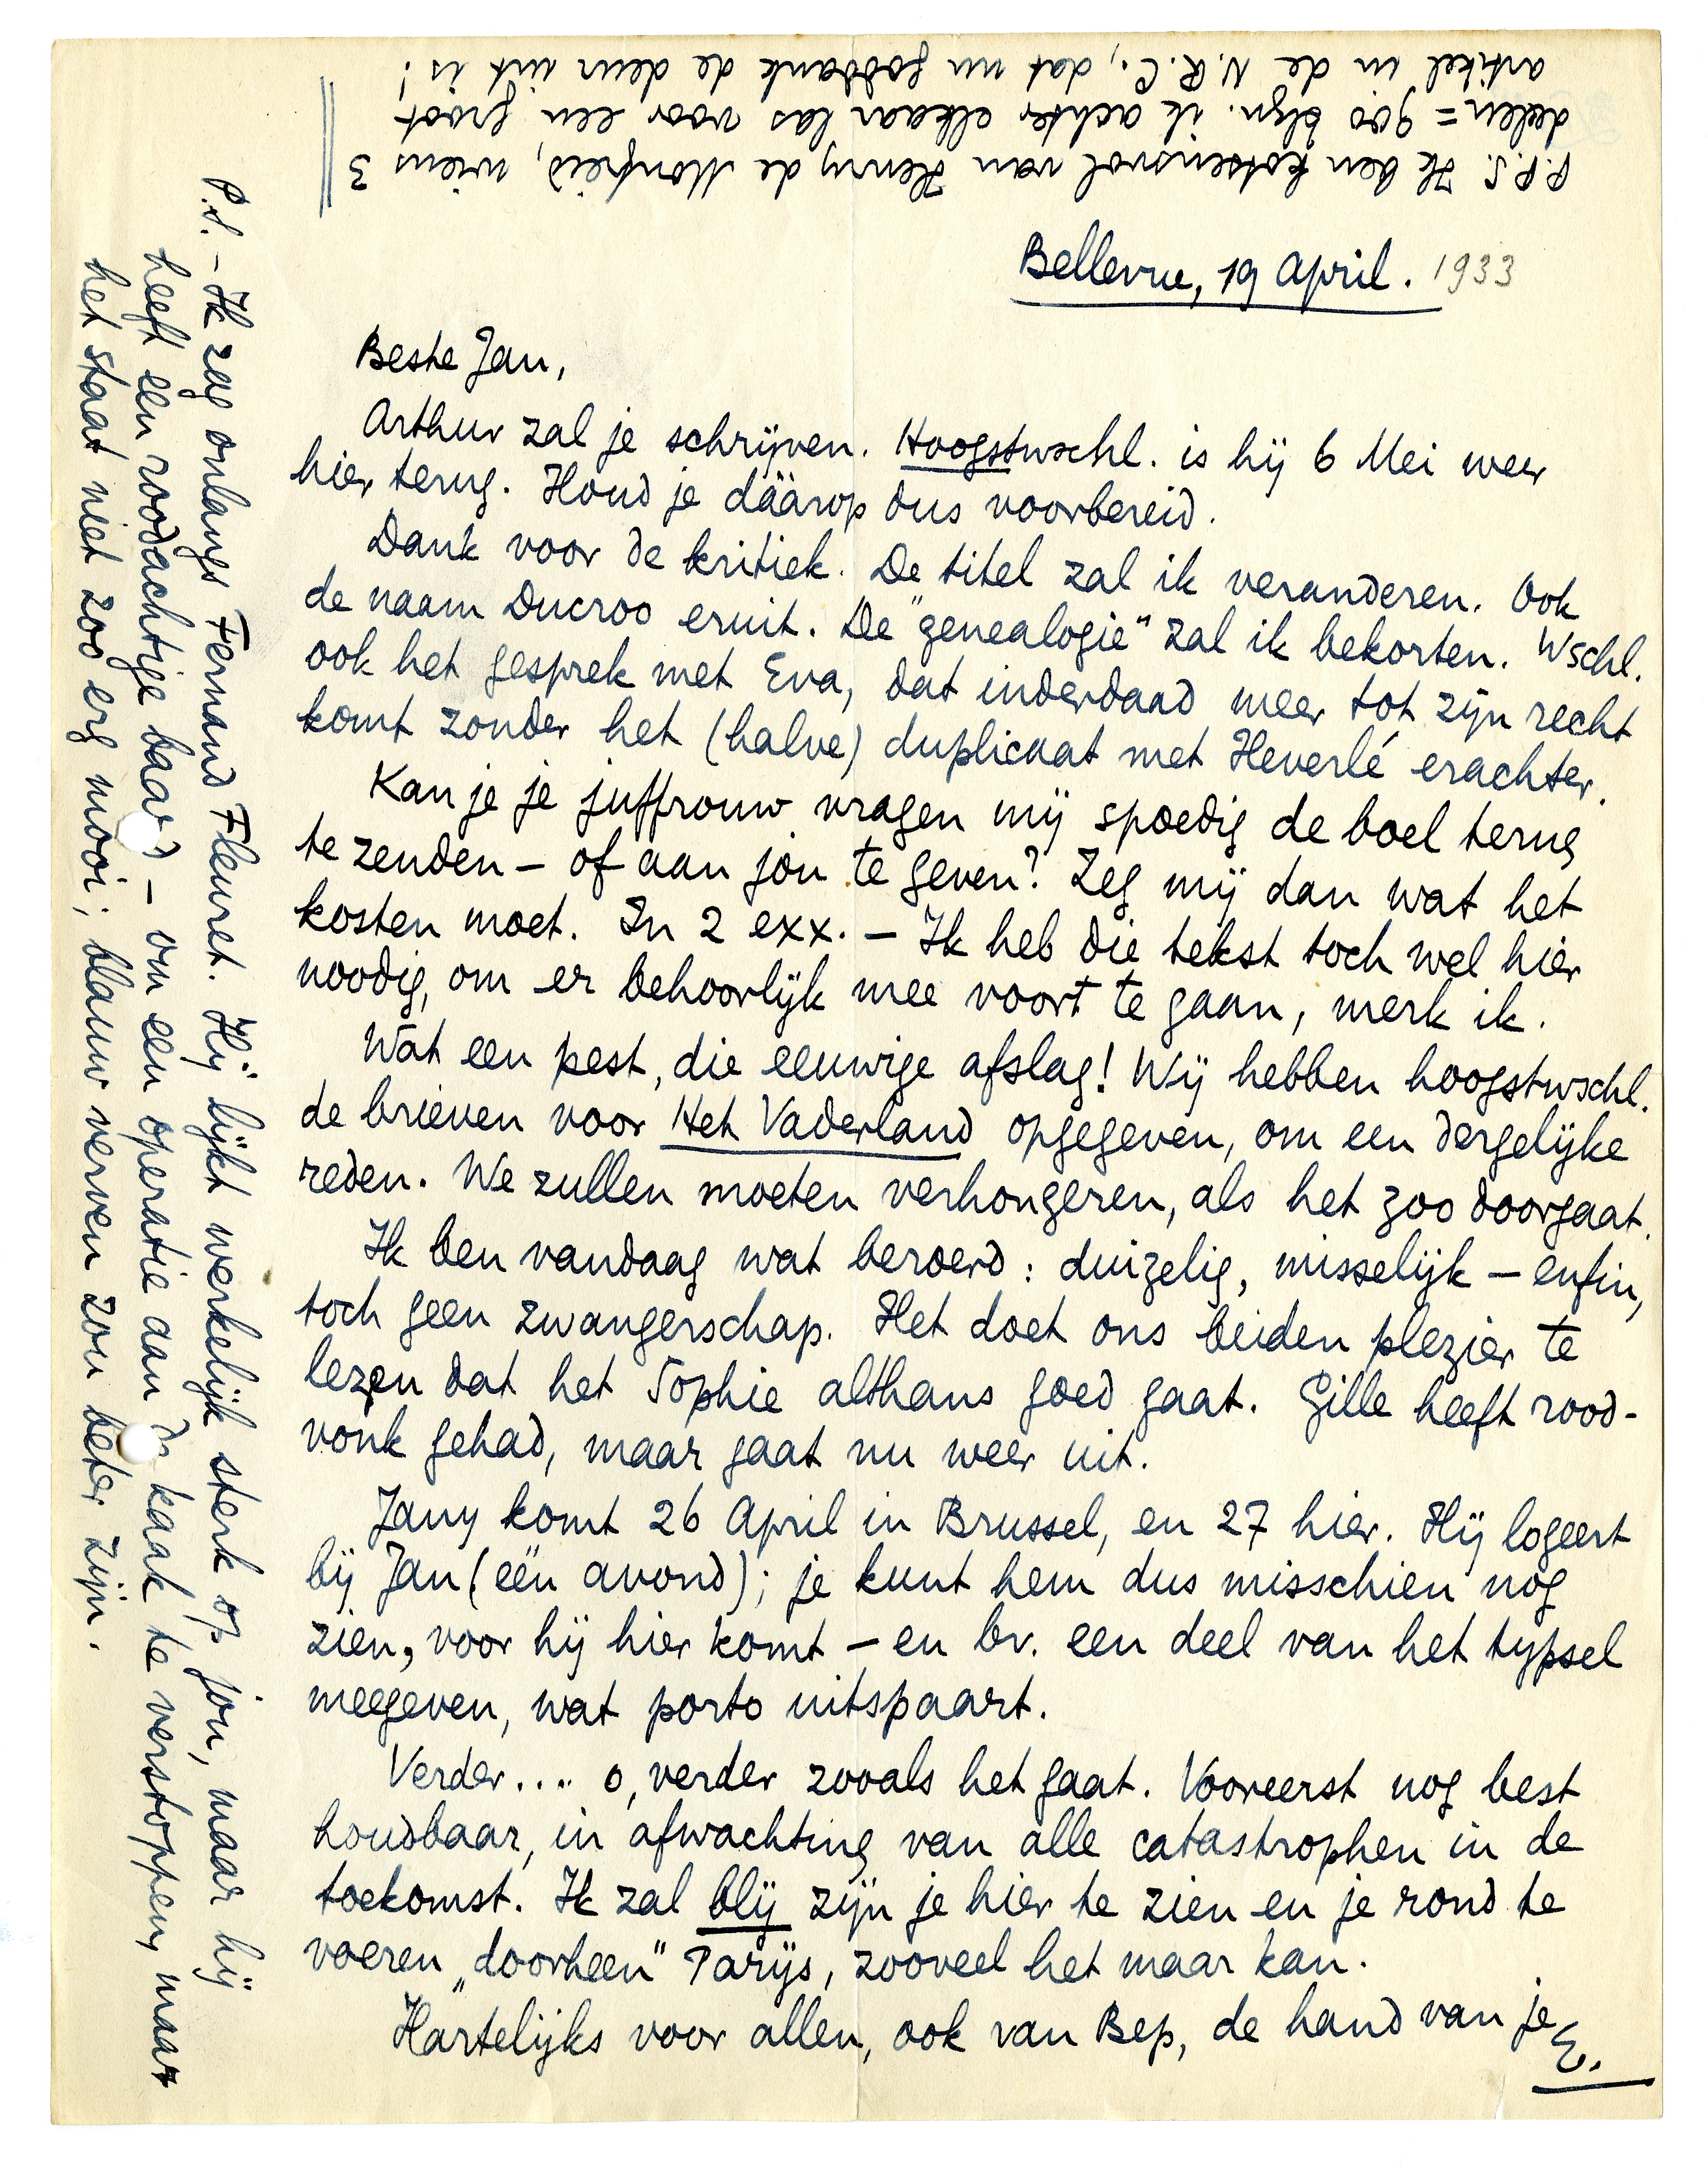 Bellevue, 19 April. 1933
Beste Jan,
Arthur zal je schrijven. Hoogstwschl. is hij 6 Mei weer
hier terug. Houd je dáárop dus voorbereid.
Dank voor de kritiek. De titel zal ik veranderen. Ook
de naam Ducroo eruit. De "genealogie" zal ik bekorten. Wschl.
ook het gesprek met Eva, dat inderdaad meer tot zijn recht
komt zonder het (halve) duplicaat met Heverlé erachter.
Kan je je juffrouw vragen mij spoedig de boel terug
te zenden – of aan jou te geven? Zeg mij dan wat het
kosten moet. In 2 exx. – Ik heb die tekst toch wel hier
noodig, om er behoorlijk mee voort te gaan, merk ik.
Wat een pest, die eeuwige afslag! Wij hebben hoogstwschl.
de brieven voor Het Vaderland opgegeven, om een dergelijke
reden. We zullen moeten verhongeren, als het zoo doorgaat.
Ik ben vandaag wat beroerd: duizelig, misselijk – enfin,
toch geen zwangerschap. Het doet ons beiden plezier te
lezen dat het Sophie althans goed gaat. Gille heeft rood-
vonk gehad, maar gaat nu weer uit.
Jany komt 26 April in Brussel, en 27 hier. Hij logeert
bij Jan (één avond); je kunt hem dus misschien nog
zien, voor hij hier komt – en bv. een deel van het typsel
meegeven, wat porto uitspaart.
Verder.... o, verder zooals het gaat. Vooreerst nog best
houdbaar, in afwachting van alle catastrophen in de
toekomst. Ik zal blij zijn je hier te zien en je rond te
voeren „doorheen" Parijs, zooveel het maar kan.
Hartelijks voor allen, ook van Bep, de hand van je
E.
P.S. – Ik zag onlangs Fernand Fleuret. Hij lijkt werkelijk sterk op jou, maar hij
heeft een roodachtige baard – om een operatie aan de kaak te verstoppen, maar
het staat niet zoo erg mooi; blauw verven zou beter zijn.
P.P.S. Ik ben kotsensvol van Henry de Monfreid, wiens 3
deelen = 900 blzn. ik achter elkaar las voor een groot
artikel in de N.R.C., dat nu goddank de deur uit is!